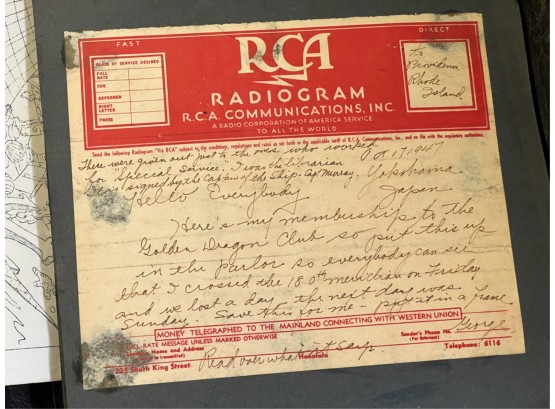 FAST
DIRECT
RCA
CLASS OF SERVICE DESIRED
FULL RATE
CDE
DEFERRED
NIGHT LETTER
PRESS
To
Providence
Rhode
Island
RADIOGRAM
R.C.A. COMMUNICATIONS, INC.
A RADIO CORPORATION OF AMERICA SERVICE
TO ALL THE WORLD
Send the following Radiogram "Via RCA" subject to terms, conditions, regulations and rates as set forth in the applicable tariff of R.C.A. Communications, Inc., and on file with the regulatory authorities.
There were given out just to the ones who worked
for "Special Service. I was the librarian
signed by the Captain of the Ship - Capt Murray.
Oct 17, 1947
Yokohama
Japan
Hello Everybody
Here's my membership to the
Golden Dragon Club so put this up
in the Parlor so everybody can see
that I crossed the 180th meridian on Friday
and we lost a day the next day was
Sunday. Save this for me - put it in a frame
George
MONEY TELEGRAPHED TO THE MAINLAND CONNECTING WITH WESTERN UNION
FULL-RATE MESSAGE UNLESS MARKED OTHERWISE
Name and Address
Sender's Phone No.
(For Reference)
Read over what it says
223 South King Street
Honolulu
Telephone: 6116